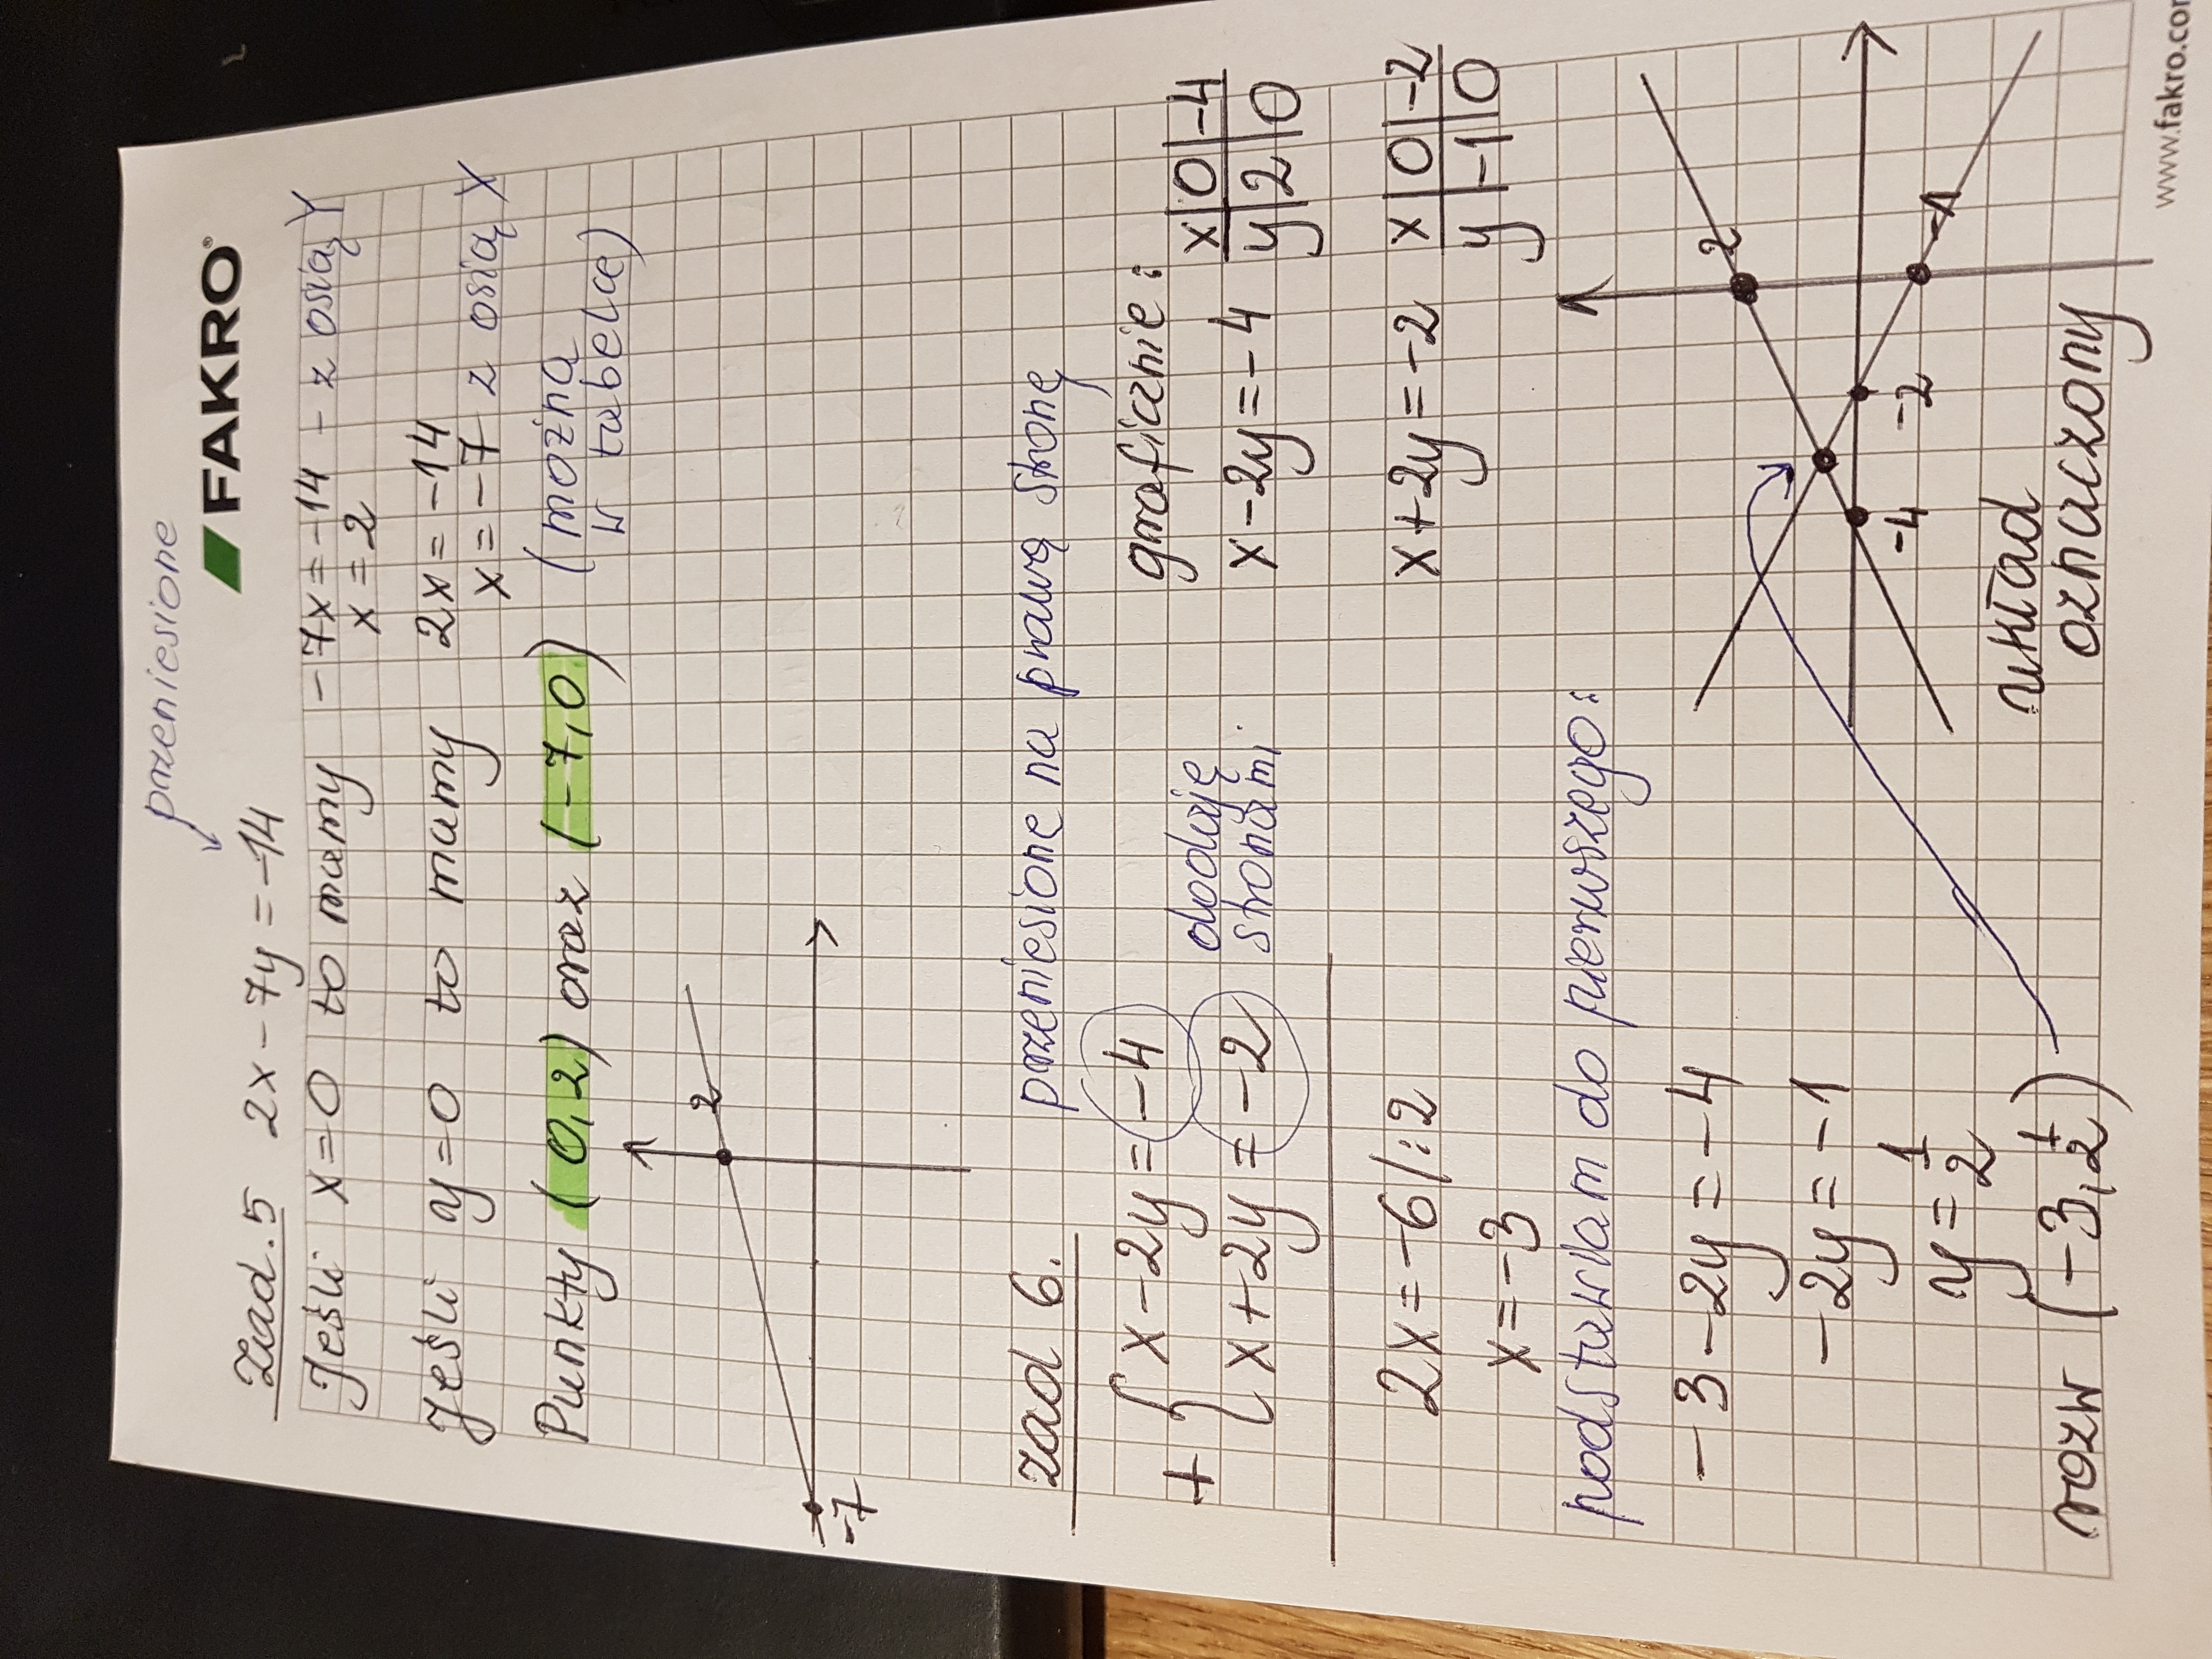 przeniesione
FAKRO®
Zad.5 2x-7y=-14
Jeśli x=0 to mamy -7x=-14 - z osią Y
x=2
Jeśli y=0 to mamy 2x=-14
x=-7 z osią X
Punkty (0,2) oraz (-7,0) (można
w tabelce)
2
-7
zad 6. przeniesione na prawą stronę
+ { x-2y=-4
x+2y=-2
dodaję
stronami
2x=-6/:2
x=-3
podstawiam do pierwszego:
-3-2y=-4
-2y=-1
y=1/2
rozw (-3,1/2)
graficznie:
x-2y=-4 x|0|-4
y|2|0
x+2y=-2 x|0|-2
y|-1|0
2
-4 -2 -1
układ
oznaczony